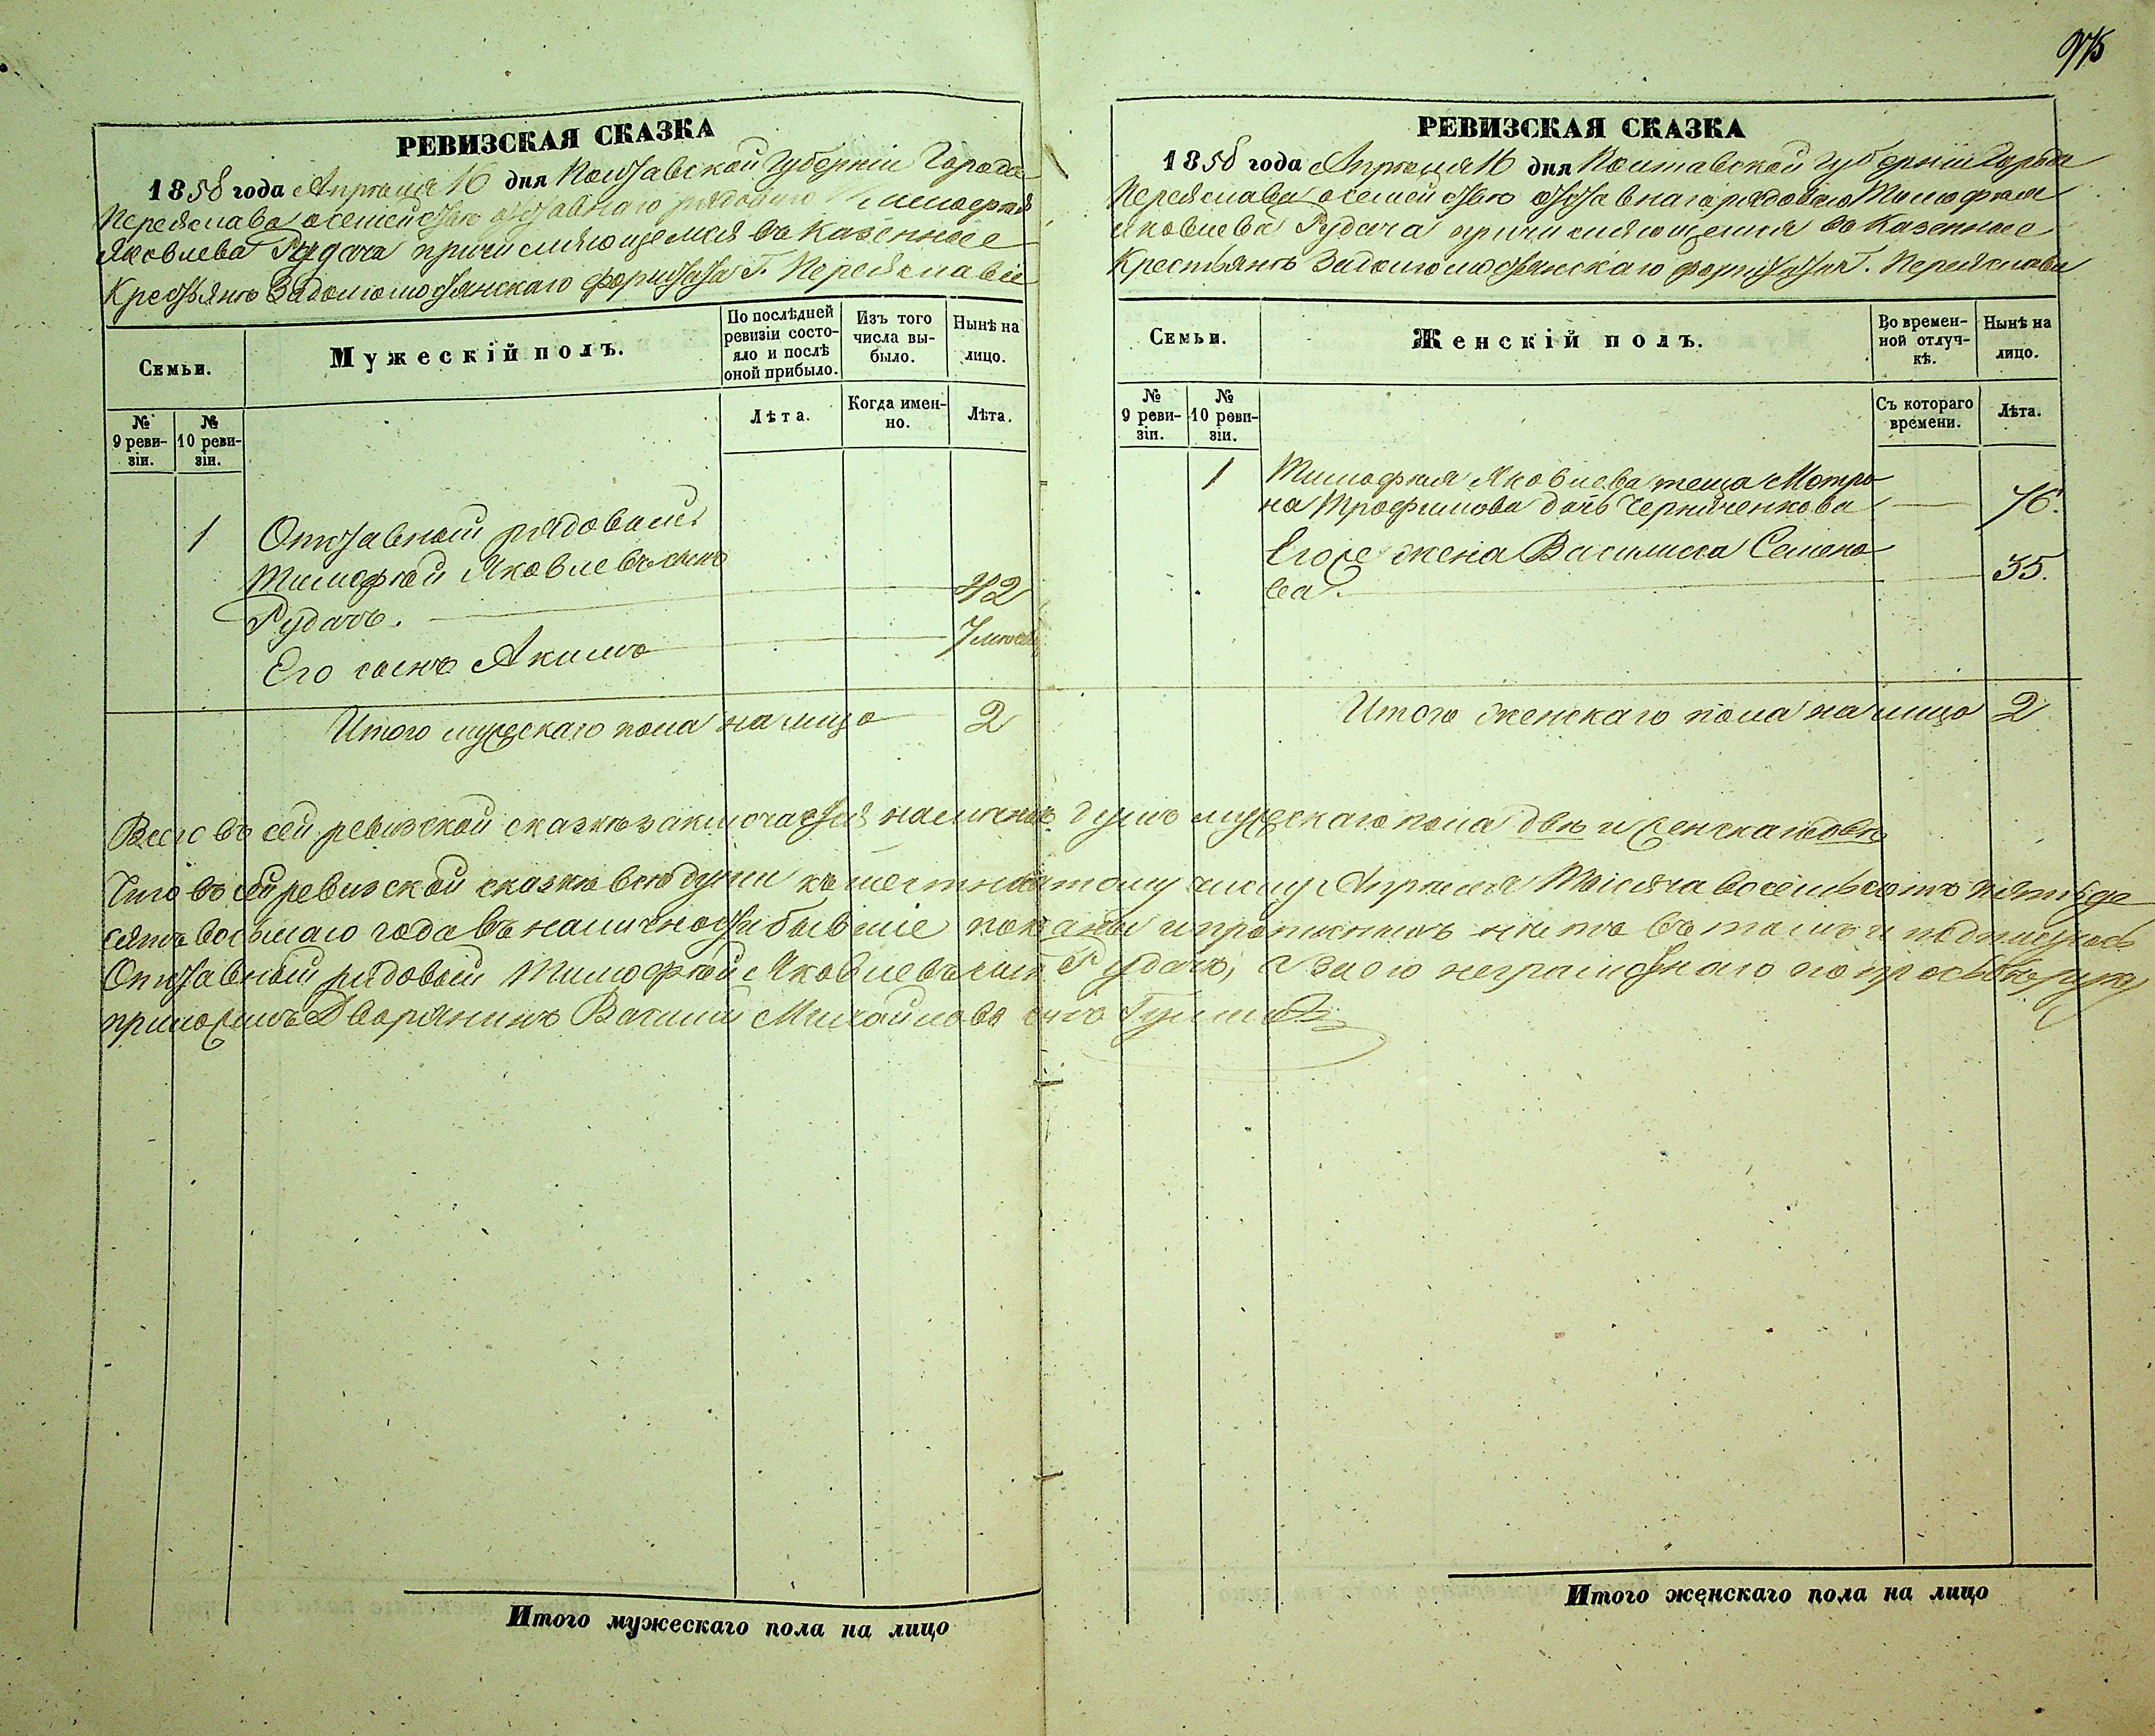 975
РЕВИЗСКАЯ СКАЗКА
1858 года Апрѣля 16 дня Полтавской Губерніи Города
Переяслава о семействѣ отставнаго рядоваго Тимофѣя
Яковлева Рудача причисляющемся въ Казенные
Крестьянъ Задолгомостянскаго форштата Г. Переяслава
Семьи.
Мужескій полъ.
По послѣдней ревизіи состояло и послѣ оной прибыло.
Изъ того числа выбыло.
Нынѣ на лицо.
№ 9 ревизіи.
№ 10 ревизіи.
Лѣта.
Когда именно.
Лѣта.
1 Отставной рядовый
Тимофѣй Яковлевъ сынъ
Рудачъ. 42
Его сынъ Акимъ 7 мѣсяц
Итого мужескаго пола на лицо 2
РЕВИЗСКАЯ СКАЗКА
1858 года Апрѣля 16 дня Полтавской Губерніи Города
Переяслава о семействѣ отставнаго рядоваго Тимофѣя
Яковлева Рудача причисляющемся въ Казенные
Крестьянъ Задолгомостянскаго форштата Г. Переяслава
Семьи.
Женскій полъ.
Во временной отлучкѣ.
Нынѣ на лицо.
№ 9 ревизіи.
№ 10 ревизіи.
Съ котораго времени.
Лѣта.
1 Тимофѣя Яковлева теща Мотро-
на Трофимова дочь Черниченкова 76.
Его же жена Василиса Семено-
ва. 35.
Итого женскаго пола на лицо 2
Всего въ сей ревизской сказкѣ заключается наличныхъ душъ мужескаго пола двѣ и женскаго двѣ
Что въ сей ревизской сказкѣ всѣ души къ шестнадцатому числу Апрѣля Тысяча восемьсотъ пятьде-
сятъ восьмаго года въ наличности бывшіе показаны и пропускныхъ нѣтъ въ томъ и подписуюсь
Отставный рядовый Тимофѣй Яковлевъ сынъ Рудачъ, а за его неграмотнаго его прозьбѣ руку
приложилъ Дворянинъ Василий Михайловъ сынъ
Итого мужескаго пола на лицо
Итого женскаго пола на лицо